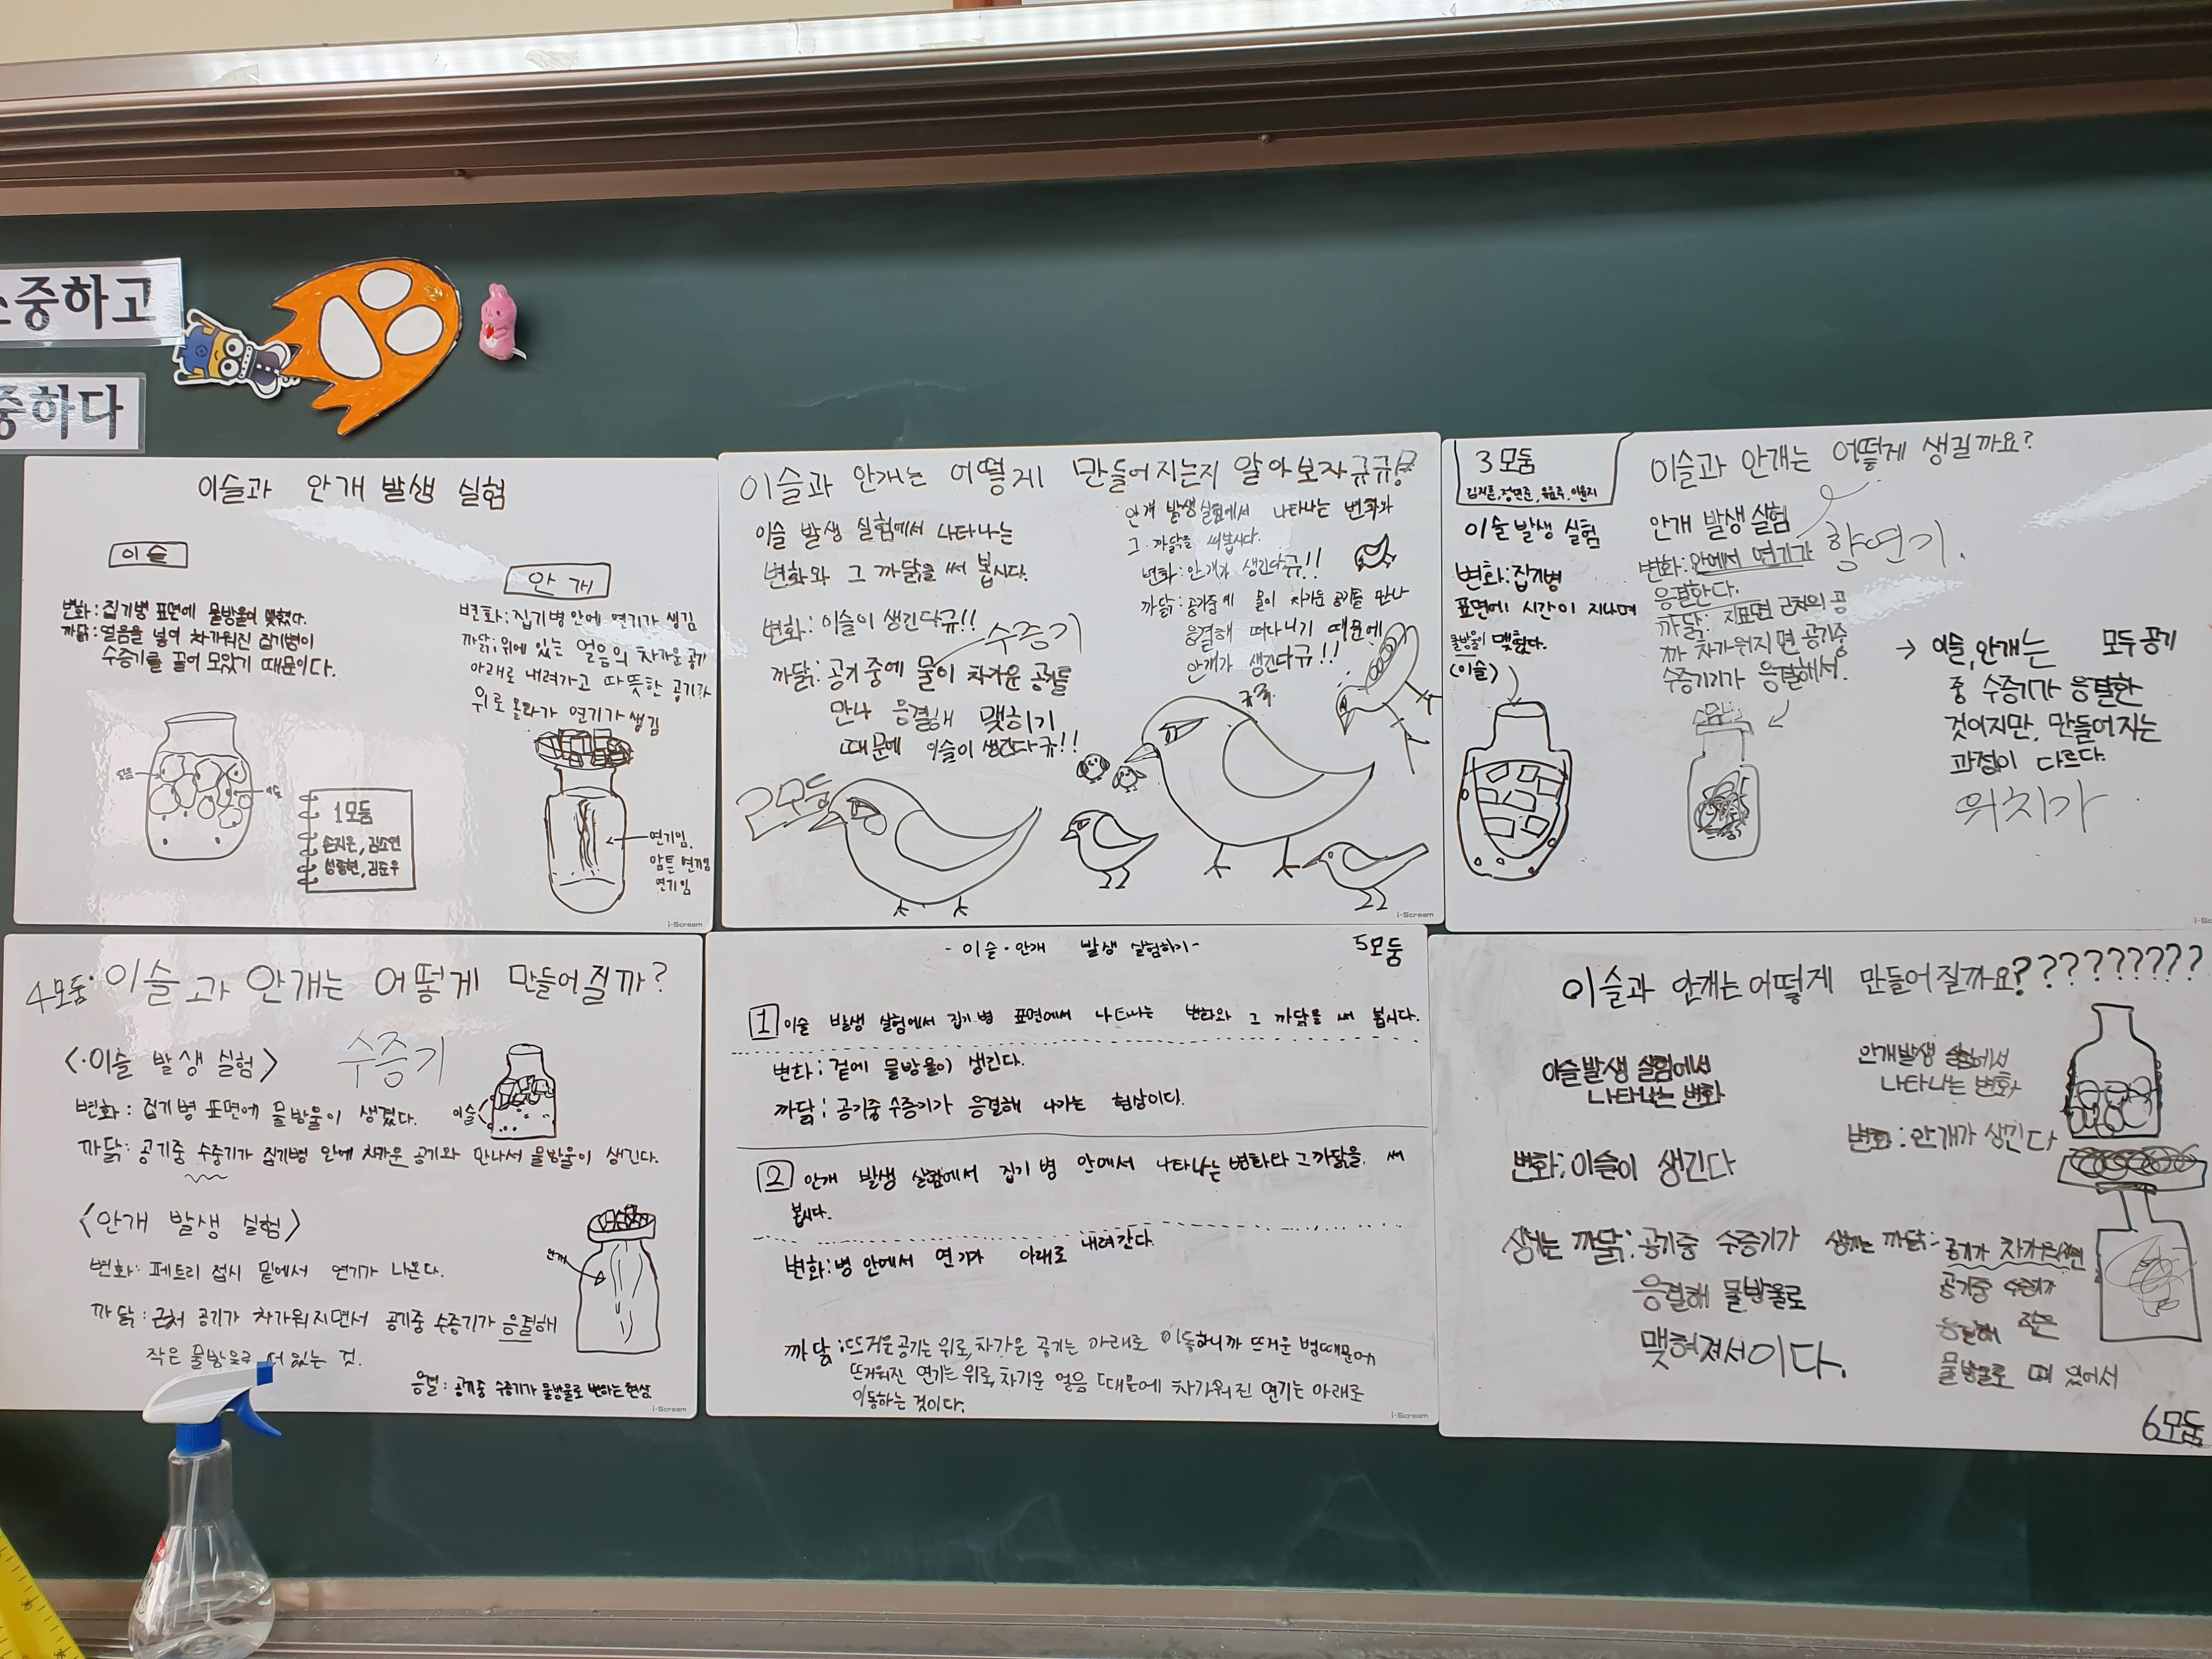 소중하고
중하다
이슬과 안개 발생 실험
이슬
변화: 집기병 표면에 물방울이 맺혔다.
까닭: 얼음을 넣어 차가워진 집기병이
수증기를 끌어 모았기 때문이다.
얼음
이슬
1모둠
안개
변화: 집기병 안에 연기가 생김
까닭: 위에 있는 얼음의 차가운 공기
아래로 내려가고 따뜻한 공기가
위로 올라가 연기가 생김
연기임.
암튼 연기임
연기임
i-Scream
이슬과 안개는 어떻게 만들어지는지 알아보자규규!
이슬 발생 실험에서 나타나는
변화와 그 까닭을 써 봅시다.
변화: 이슬이 생긴다규!!
수증기
까닭: 공기 중에 물이 차가운 공기를
만나 응결해 맺히기
때문에 이슬이 생긴다규!!
2모둠
안개 발생 실험에서 나타나는 변화와
그 까닭을 써봅시다.
변화: 안개가 생긴다규!!
까닭: 공기중에 물이 차가운 공기를 만나
응결해 떠다니기 때문에
안개가 생긴다규!!
i-Scream
3모둠
이슬과 안개는 어떻게 생길까요?
이슬 발생 실험
변화: 집기병
표면에 시간이 지나며
물방울이 맺혔다.
(이슬)
안개 발생 실험
변화: 안에서 연기가
향연기.
응결한다.
까닭: 지표면 근처의 공
까 차가워지면 공기중
수증기가 응결해서.
→ 이슬, 안개는 모두 공기
중 수증기가 응결한
것이지만, 만들어지는
과정이 다르다.
위치가
4모둠: 이슬과 안개는 어떻게 만들어질까?
<이슬 발생 실험>
수증기
변화: 집기병 표면에 물방울이 생겼다.
이슬
까닭: 공기중 수증기가 집기병 안에 차가운 공기와 만나서 물방울이 생긴다.
<안개 발생 실험>
안개
변화: 페트리 접시 밑에서 연기가 나온다.
까닭: 근처 공기가 차가워지면서 공기중 수증기가 응결해
작은 물방울로 떠 있는 것.
응결: 공기중 수증기가 물방울로 변하는 현상
i-Scream
- 이슬·안개 발생 실험하기 -
5모둠
1 이슬 발생 실험에서 집기병 표면에서 나타나는 변화와 그 까닭을 써 봅시다.
변화: 겉에 물방울이 생긴다.
까닭: 공기중 수증기가 응결해 나가는 현상이다.
2 안개 발생 실험에서 집기 병 안에서 나타나는 변화와 그 까닭을 써
봅시다.
변화: 병 안에서 연기가 아래로 내려간다.
까닭: 뜨거운 공기는 위로, 차가운 공기는 아래로 이동하니까 뜨거운 병때문에
뜨거워진 연기는 위로, 차가운 얼음 때문에 차가워진 연기는 아래로
이동하는 것이다.
i-Scream
이슬과 안개는 어떻게 만들어질까요?????????
이슬발생 실험에서
나타나는 변화
변화: 이슬이 생긴다
생기는 까닭: 공기중 수증기가
응결해 물방울로
맺혀져서이다.
안개발생 실험에서
나타나는 변화
변화: 안개가 생긴다
생기는 까닭: 공기가 차가워지면
공기중 수증기가
응결해 작은
물방울로 떠 있어서
6모둠